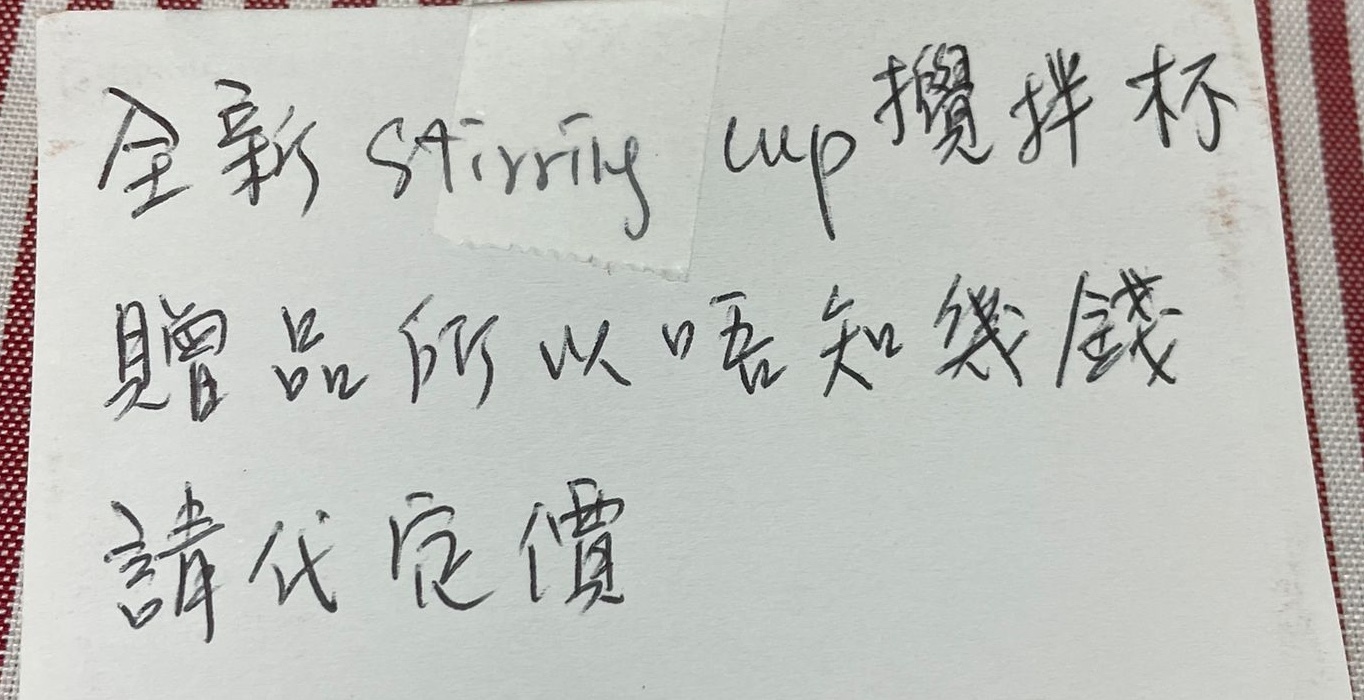 全新 stirring cup 攪拌杯
贈品所以唔知幾錢
請代定價